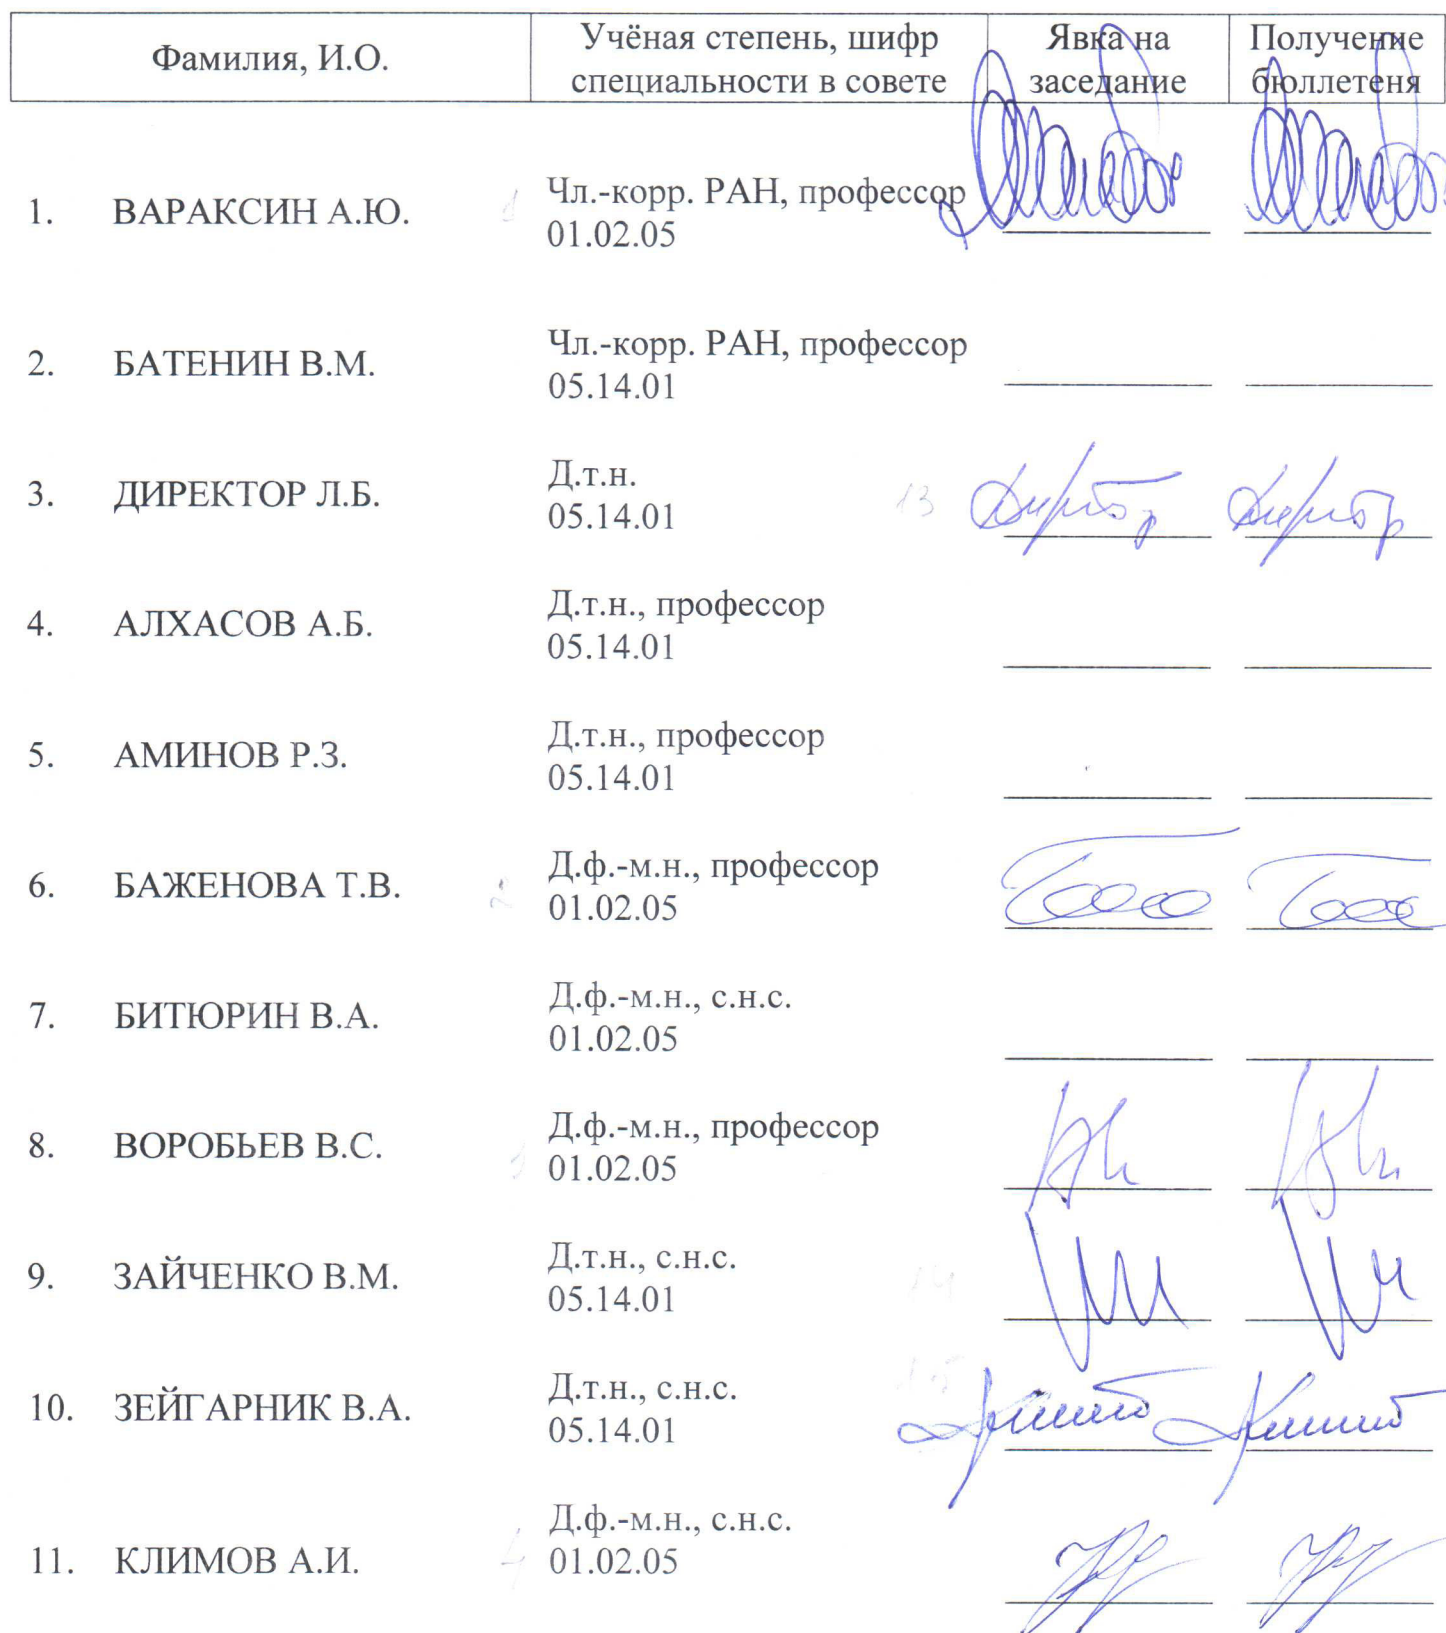 Фамилия, И.О.
Учёная степень, шифр
специальности в совете
Явка на
заседание
Получение
бюллетеня
1. ВАРАКСИН А.Ю.
Чл.-корр. РАН, профессор
01.02.05
2. БАТЕНИН В.М.
Чл.-корр. РАН, профессор
05.14.01
3. ДИРЕКТОР Л.Б.
Д.т.н.
05.14.01
13
4. АЛХАСОВ А.Б.
Д.т.н., профессор
05.14.01
5. АМИНОВ Р.З.
Д.т.н., профессор
05.14.01
6. БАЖЕНОВА Т.В.
Д.ф.-м.н., профессор
01.02.05
7. БИТЮРИН В.А.
Д.ф.-м.н., с.н.с.
01.02.05
8. ВОРОБЬЕВ В.С.
Д.ф.-м.н., профессор
01.02.05
9. ЗАЙЧЕНКО В.М.
Д.т.н., с.н.с.
05.14.01
14
10. ЗЕЙГАРНИК В.А.
Д.т.н., с.н.с.
05.14.01
15
11. КЛИМОВ А.И.
Д.ф.-м.н., с.н.с.
01.02.05